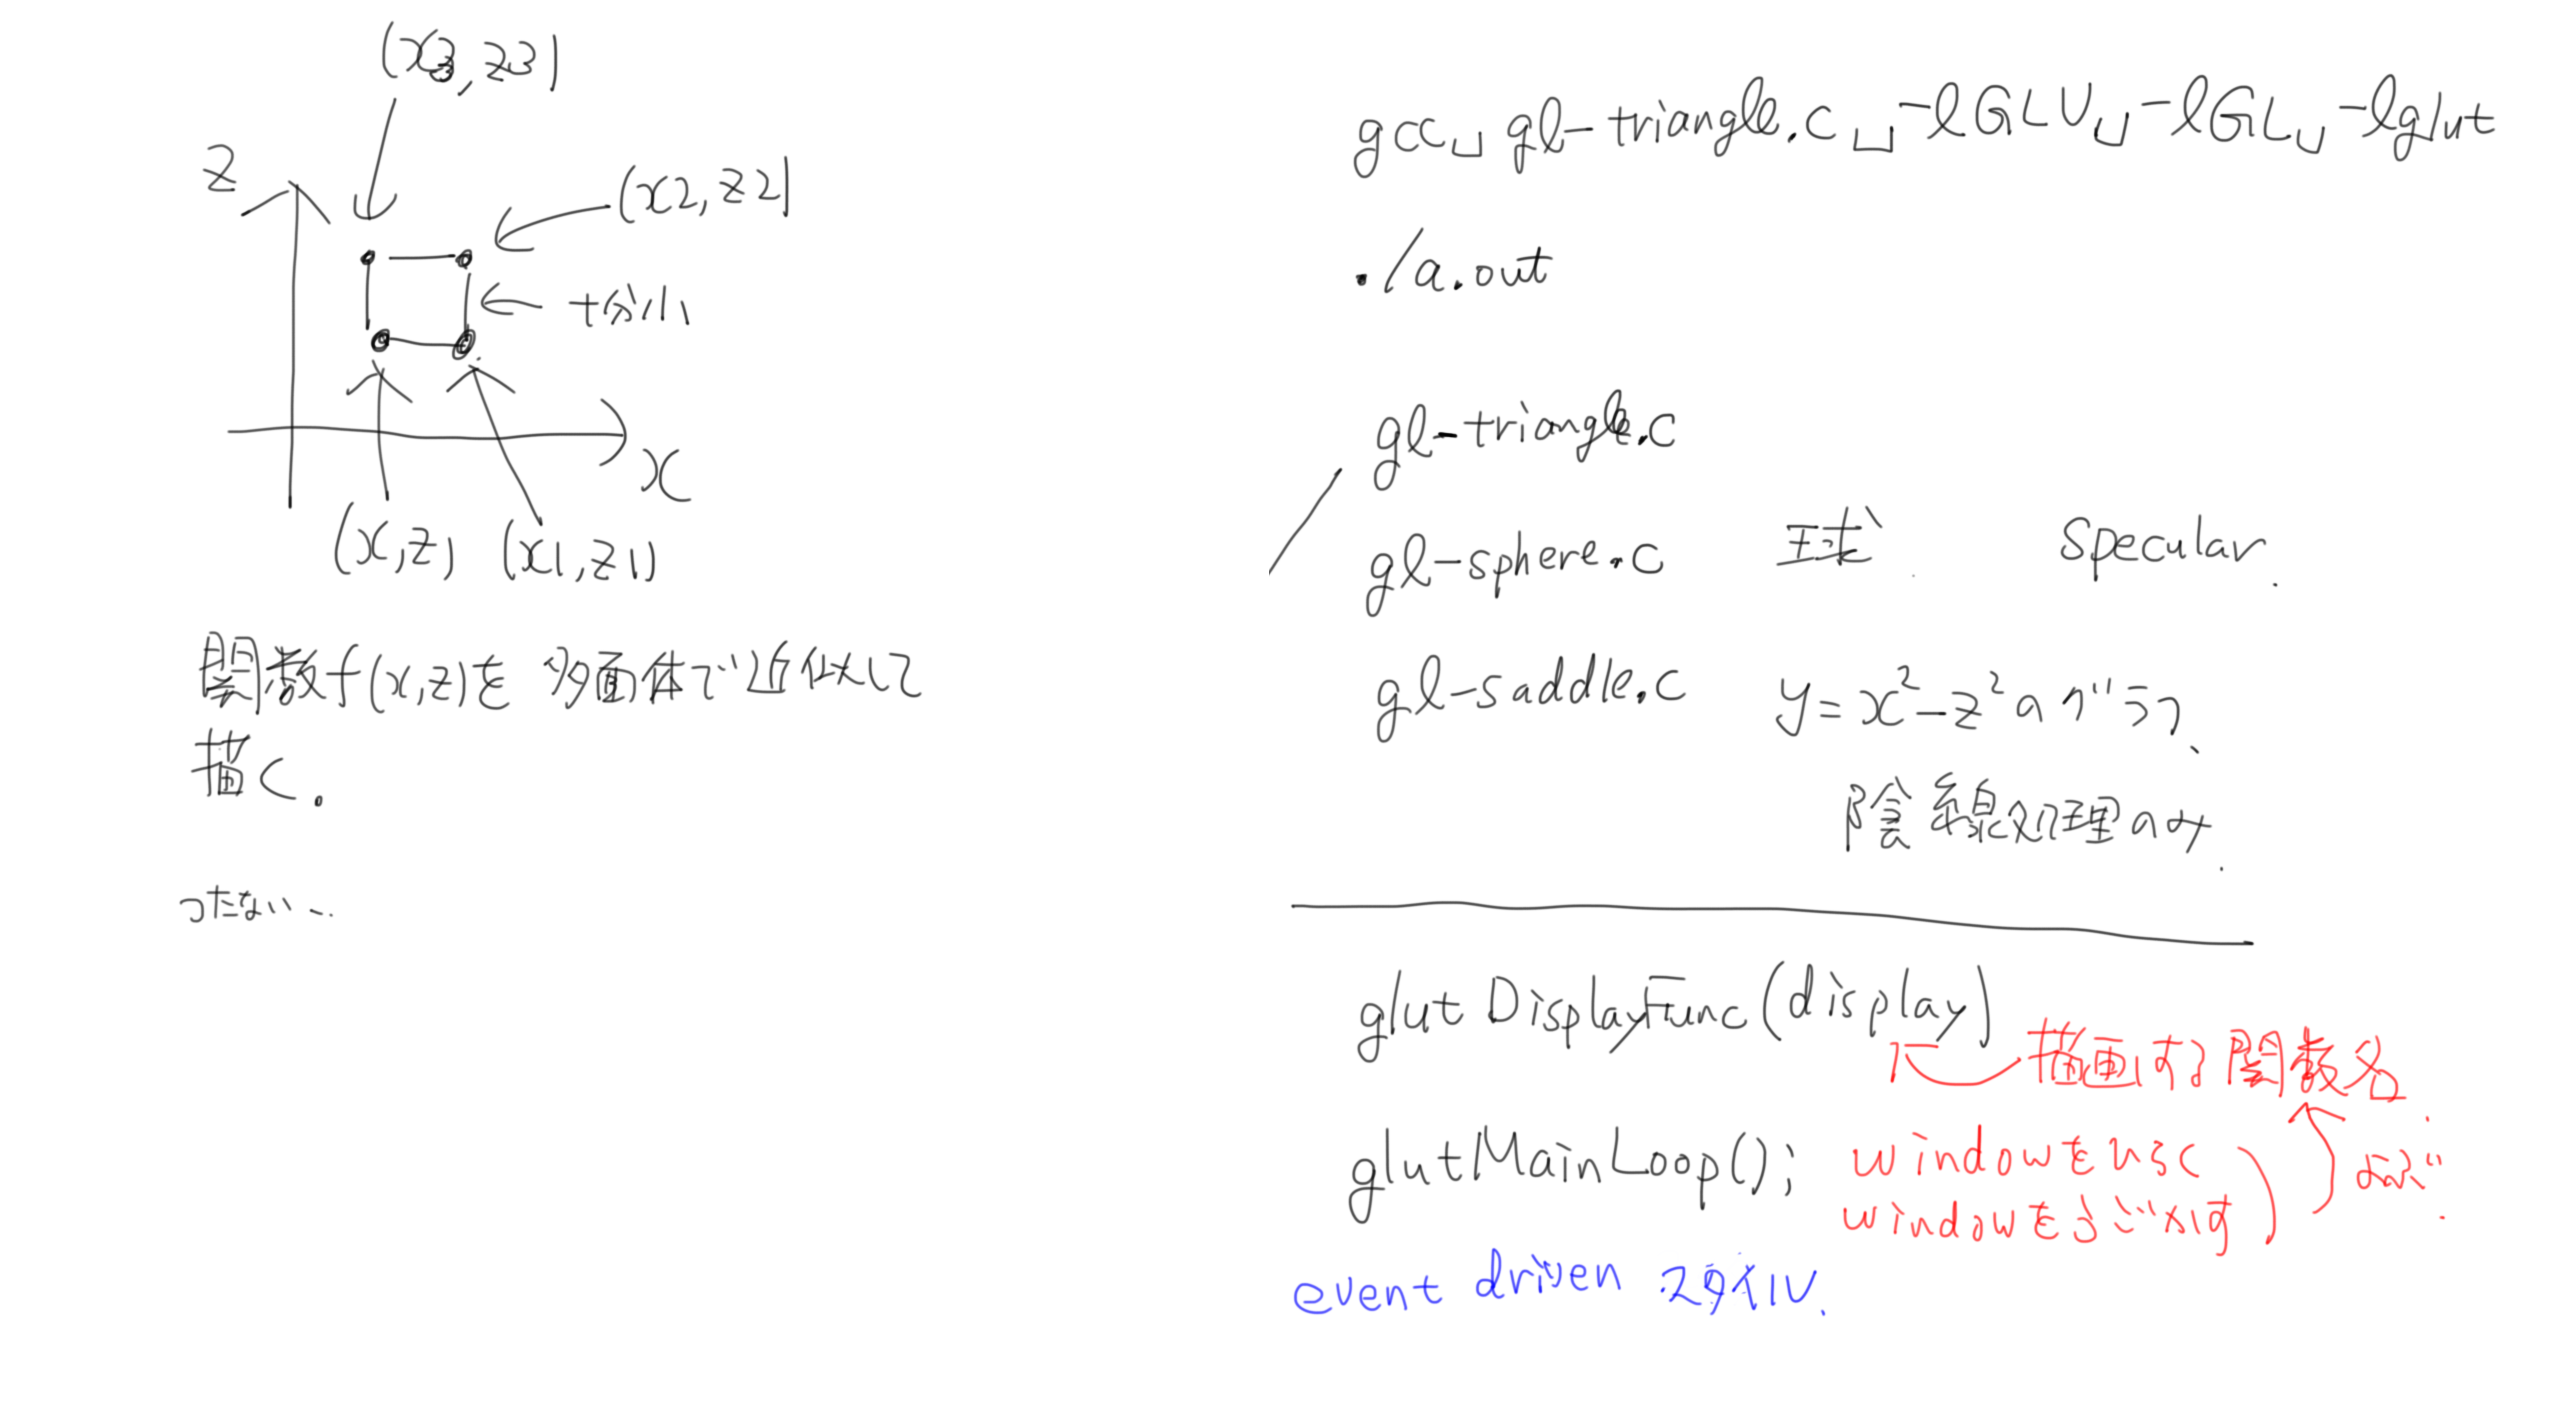 (x3, z3)
z
(x2, z2)
十分小
x
(x, z) (x1, z1)
関数f(x,z)を 多面体で近似して
描く。
つたない...
gcc␣gl-triangle.c␣-lGLU␣-lGL␣-lglut
./a.out
gl-triangle.c
gl-sphere.c 球 Specular.
gl-saddle.c y=x²-z²のグラフ、
陰線処理のみ.
glutDisplayFunc(display)
描画する関数名.
glutMainLoop(); windowをひらく
windowをうごかす よぶ.
event driven スタイル.